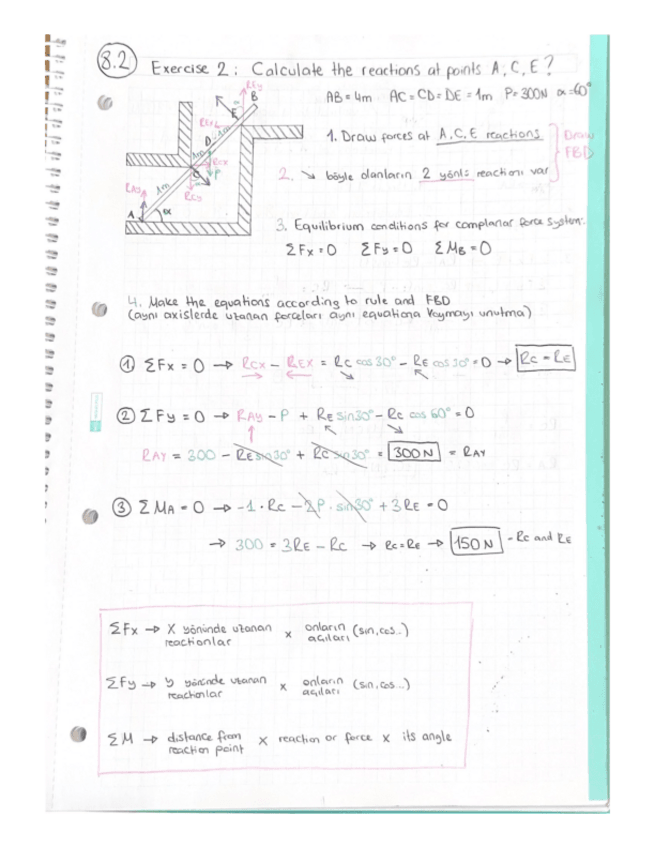 8.2 Exercise 2: Calculate the reactions at points A, C, E?
AB = 4m AC = CD = DE = 1m P = 300N α = 60°
REy
B
REx
E
1m
D
1m
RCx
P
C
RCy
RAy
1m
A
α
1. Draw forces at A, C, E reactions
Draw FBD
2. ↘ böyle olanların 2 yönlü reactionı var
3. Equilibrium conditions for complanar force system:
ΣFx = 0 ΣFy = 0 ΣMB = 0
4. Make the equations according to rule and FBD
(aynı axislerde uzanan forceları aynı equationa koymayı unutma)
① ΣFx = 0 → RCX - REX = RC cos 30° - RE cos 30° = 0 → RC = RE
② ΣFy = 0 → RAY - P + RE sin30° - RC cos 60° = 0
RAY = 300 - RE sin30° + RC sin30° = 300 N = RAY
③ ΣMA = 0 → -1 · RC - 2P · sin30° + 3RE = 0
→ 300 = 3RE - RC → RC = RE → 150 N - RC and RE
ΣFx → X yönünde uzanan reactionlar x onların açıları (sin, cos..)
ΣFy → y yönünde uzanan reactionlar x onların açıları (sin, cos...)
ΣM → distance from reaction point x reaction or force x its angle